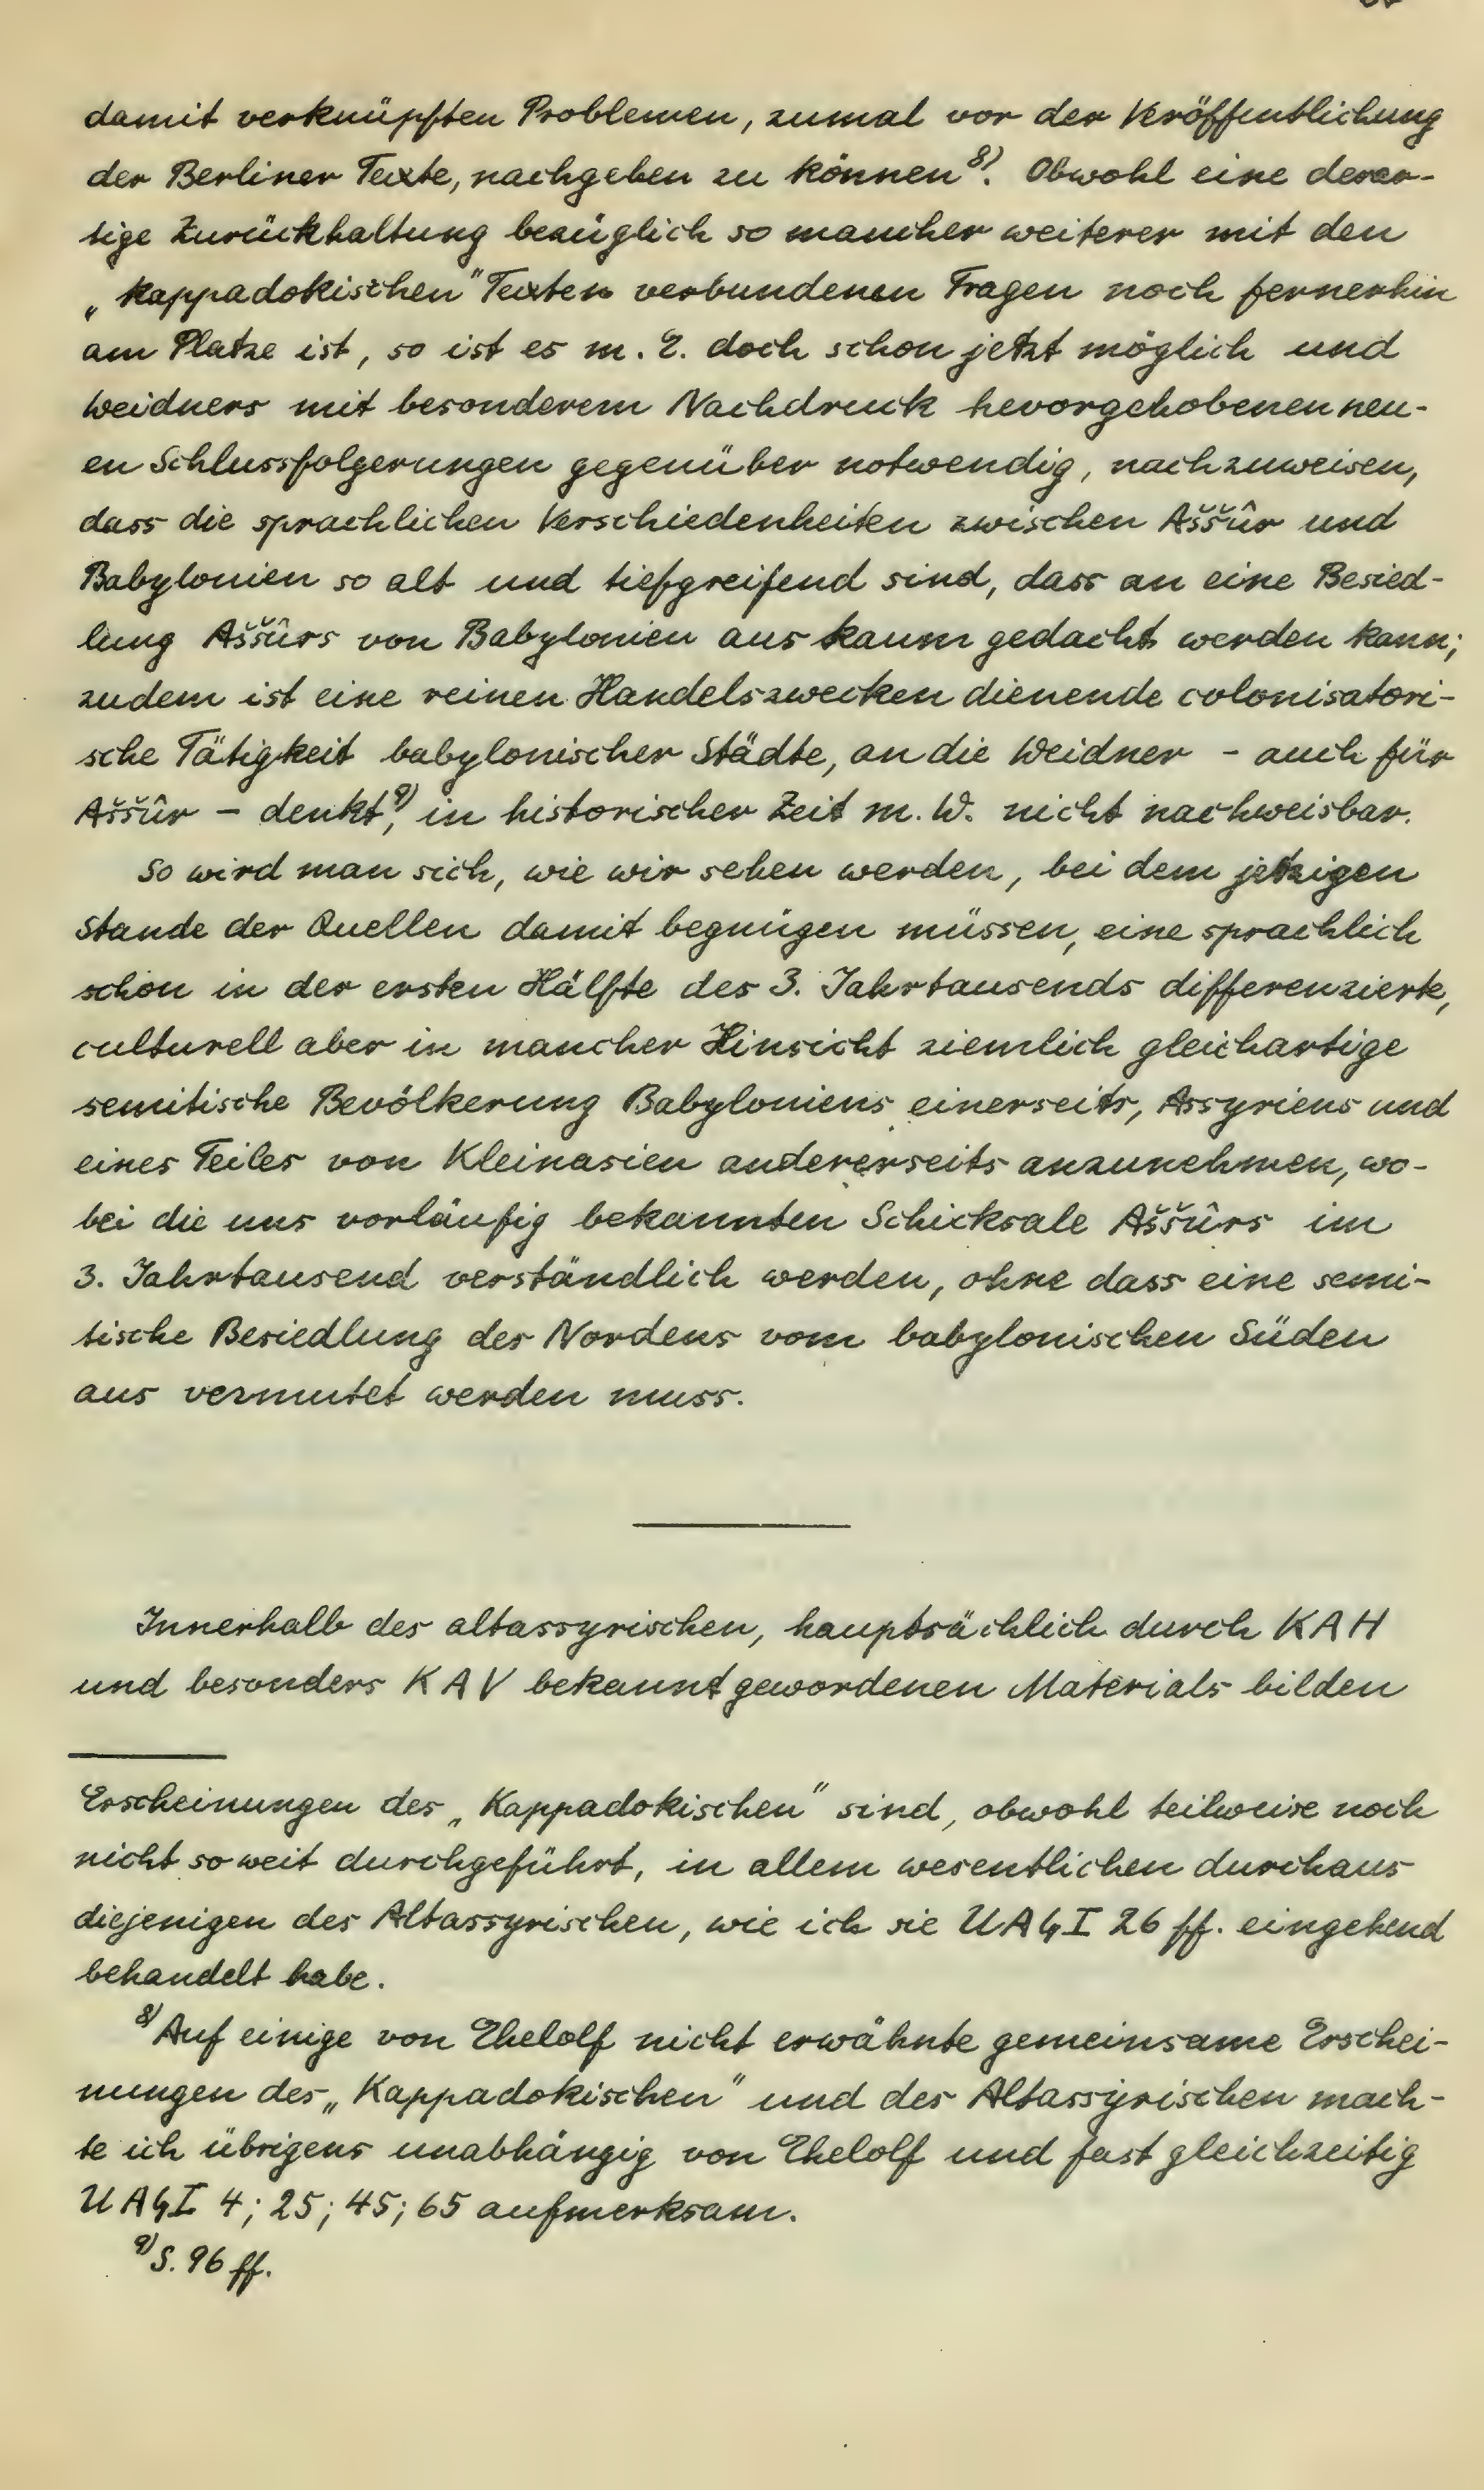 damit verknüpften Problemen, zumal vor der Veröffentlichung
der Berliner Texte, nachgehen zu können⁸⁾. Obwohl eine derar-
tige Zurückhaltung bezüglich so mancher weiterer mit den
„kappadokischen" Texten verbundenen Fragen noch fernerhin
am Platze ist, so ist es m. E. doch schon jetzt möglich und
Weidners mit besonderem Nachdruck hevorgehobenen neu-
en Schlussfolgerungen gegenüber notwendig, nachzuweisen,
dass die sprachlichen Verschiedenheiten zwischen Aššûr und
Babylonien so alt und tiefgreifend sind, dass an eine Besied-
lung Aššûrs von Babylonien aus kaum gedacht werden kann;
zudem ist eine reinen Handelszwecken dienende colonisatori-
sche Tätigkeit babylonischer Städte, an die Weidner - auch für
Aššûr - denkt⁹⁾, in historischer Zeit m. W. nicht nachweisbar.
So wird man sich, wie wir sehen werden, bei dem jetzigen
Stande der Quellen damit begnügen müssen, eine sprachlich
schon in der ersten Hälfte des 3. Jahrtausends differenzierte,
culturell aber in mancher Hinsicht ziemlich gleichartige
semitische Bevölkerung Babyloniens einerseits, Assyriens und
eines Teiles von Kleinasien andererseits anzunehmen, wo-
bei die uns vorläufig bekannten Schicksale Aššûrs im
3. Jahrtausend verständlich werden, ohne dass eine semi-
tische Besiedlung des Nordens vom babylonischen Süden
aus vermutet werden muss.
Innerhalb des altassyrischen, hauptsächlich durch KAH
und besonders KAV bekannt gewordenen Materials bilden
Erscheinungen des „Kappadokischen" sind, obwohl teilweise noch
nicht soweit durchgeführt, in allem wesentlichen durchaus
diejenigen des Altassyrischen, wie ich sie UAG I 26 ff. eingehend
behandelt habe.
⁸⁾ Auf einige von Ehelolf nicht erwähnte gemeinsame Erschei-
nungen des „Kappadokischen" und des Altassyrischen mach-
te ich übrigens unabhängig von Ehelolf und fast gleichzeitig
UAG I 4; 25; 45; 65 aufmerksam.
⁹⁾ S. 96 ff.